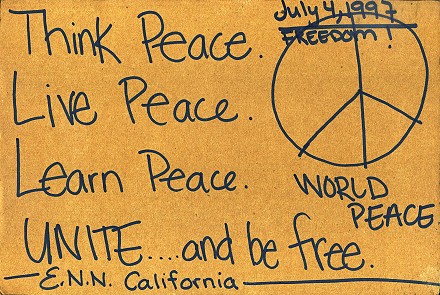 Think Peace.
July 4, 1997
FREEDOM!
Live Peace.
Learn Peace.
WORLD
PEACE
UNITE....and be free.
E.N.N. California